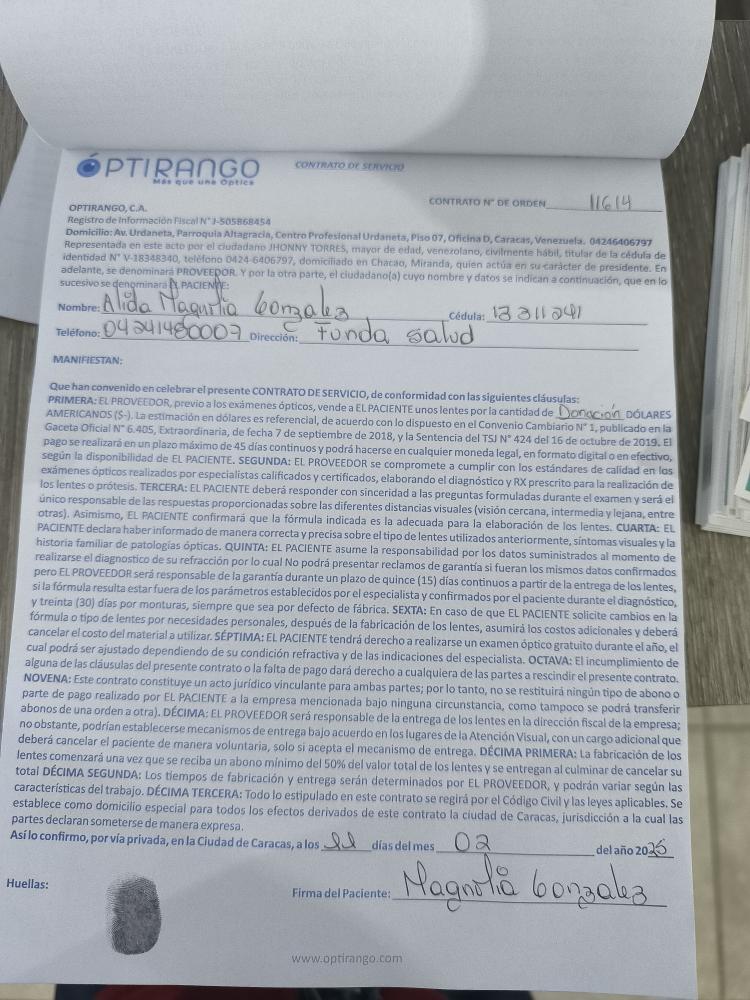 ÓPTIRANGO
Más que una Óptica
CONTRATO DE SERVICIO
CONTRATO N° DE ORDEN 11614
OPTIRANGO, C.A.
Registro de Información Fiscal N° J-505868454
Domicilio: Av. Urdaneta, Parroquia Altagracia, Centro Profesional Urdaneta, Piso 07, Oficina D, Caracas, Venezuela. 04246406797
Representada en este acto por el ciudadano JHONNY TORRES, mayor de edad, venezolano, civilmente hábil, titular de la cédula de
identidad N° V-18348340, teléfono 0424-6406797, domiciliado en Chacao, Miranda, quien actúa en su carácter de presidente. En
adelante, se denominará PROVEEDOR. Y por la otra parte, el ciudadano(a) cuyo nombre y datos se indican a continuación, que en lo
sucesivo se denominará EL PACIENTE:
Nombre: Alida Magnolia Gonzalez Cédula: 13311241
Teléfono: 04241480007 Dirección: Funda salud
MANIFIESTAN:
Que han convenido en celebrar el presente CONTRATO DE SERVICIO, de conformidad con las siguientes cláusulas:
PRIMERA: EL PROVEEDOR, previo a los exámenes ópticos, vende a EL PACIENTE unos lentes por la cantidad de Donación DÓLARES
AMERICANOS ($-). La estimación en dólares es referencial, de acuerdo con lo dispuesto en el Convenio Cambiario N° 1, publicado en la
Gaceta Oficial N° 6.405, Extraordinaria, de fecha 7 de septiembre de 2018, y la Sentencia del TSJ N° 424 del 16 de octubre de 2019. El
pago se realizará en un plazo máximo de 45 días continuos y podrá hacerse en cualquier moneda legal, en formato digital o en efectivo,
según la disponibilidad de EL PACIENTE. SEGUNDA: EL PROVEEDOR se compromete a cumplir con los estándares de calidad en los
exámenes ópticos realizados por especialistas calificados y certificados, elaborando el diagnóstico y RX prescrito para la realización de
los lentes o prótesis. TERCERA: EL PACIENTE deberá responder con sinceridad a las preguntas formuladas durante el examen y será el
único responsable de las respuestas proporcionadas sobre las diferentes distancias visuales (visión cercana, intermedia y lejana, entre
otras). Asimismo, EL PACIENTE confirmará que la fórmula indicada es la adecuada para la elaboración de los lentes. CUARTA: EL
PACIENTE declara haber informado de manera correcta y precisa sobre el tipo de lentes utilizados anteriormente, síntomas visuales y la
historia familiar de patologías ópticas. QUINTA: EL PACIENTE asume la responsabilidad por los datos suministrados al momento de
realizarse el diagnostico de su refracción por lo cual No podrá presentar reclamos de garantía si fueran los mismos datos confirmados
pero EL PROVEEDOR será responsable de la garantía durante un plazo de quince (15) días continuos a partir de la entrega de los lentes,
si la fórmula resulta estar fuera de los parámetros establecidos por el especialista y confirmados por el paciente durante el diagnóstico,
y treinta (30) días por monturas, siempre que sea por defecto de fábrica. SEXTA: En caso de que EL PACIENTE solicite cambios en la
fórmula o tipo de lentes por necesidades personales, después de la fabricación de los lentes, asumirá los costos adicionales y deberá
cancelar el costo del material a utilizar. SÉPTIMA: EL PACIENTE tendrá derecho a realizarse un examen óptico gratuito durante el año, el
cual podrá ser ajustado dependiendo de su condición refractiva y de las indicaciones del especialista. OCTAVA: El incumplimiento de
alguna de las cláusulas del presente contrato o la falta de pago dará derecho a cualquiera de las partes a rescindir el presente contrato.
NOVENA: Este contrato constituye un acto jurídico vinculante para ambas partes; por lo tanto, no se restituirá ningún tipo de abono o
parte de pago realizado por EL PACIENTE a la empresa mencionada bajo ninguna circunstancia, como tampoco se podrá transferir
abonos de una orden a otra). DÉCIMA: EL PROVEEDOR será responsable de la entrega de los lentes en la dirección fiscal de la empresa;
no obstante, podrían establecerse mecanismos de entrega bajo acuerdo en los lugares de la Atención Visual, con un cargo adicional que
deberá cancelar el paciente de manera voluntaria, solo si acepta el mecanismo de entrega. DÉCIMA PRIMERA: La fabricación de los
lentes comenzará una vez que se reciba un abono mínimo del 50% del valor total de los lentes y se entregan al culminar de cancelar su
total DÉCIMA SEGUNDA: Los tiempos de fabricación y entrega serán determinados por EL PROVEEDOR, y podrán variar según las
características del trabajo. DÉCIMA TERCERA: Todo lo estipulado en este contrato se regirá por el Código Civil y las leyes aplicables. Se
establece como domicilio especial para todos los efectos derivados de este contrato la ciudad de Caracas, jurisdicción a la cual las
partes declaran someterse de manera expresa.
Así lo confirmo, por vía privada, en la Ciudad de Caracas, a los 11 días del mes 02 del año 2025
Huellas:
Firma del Paciente: Magnolia Gonzalez
www.optirango.com